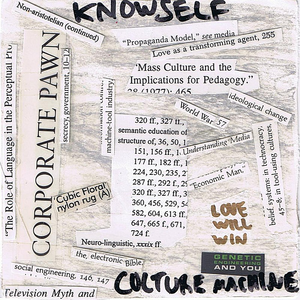 KNOWSELF
Non-aristotelian (continued)
"Propaganda Model," see media
Love as a transforming agent, 255
'Mass Culture and the
Implications for Pedagogy."
28 (1977): 465
"The Role of Language in the Perceptual Pro
CORPORATE PAWN
secrecy, government, 10–12
machine-tool industry
World War 57
ideological change
320 ff., 327 ff.
semantic education of
structure of, 36, 50, 1
151, 156 ff.
177 ff., 182 ff.,
224, 230, 235, 2
287 ff., 292 f., 2
320 ff., 327 ff., 3
360, 456, 529, 54
582, 604, 613 ff.
647, 665 f., 671,
724 f.
Understanding Media
"Economic Man,"
belief systems: in technocracy,
in tool-using cultures,
Cubic Floral
nylon rug (A)
LOVE
WILL
WIN
Neuro-linguistic, xxxix ff.
the, electronic Bible,
social engineering, 146, 147
GENETIC
ENGINEERING
AND YOU
CULTURE MACHINE
Television Myth and